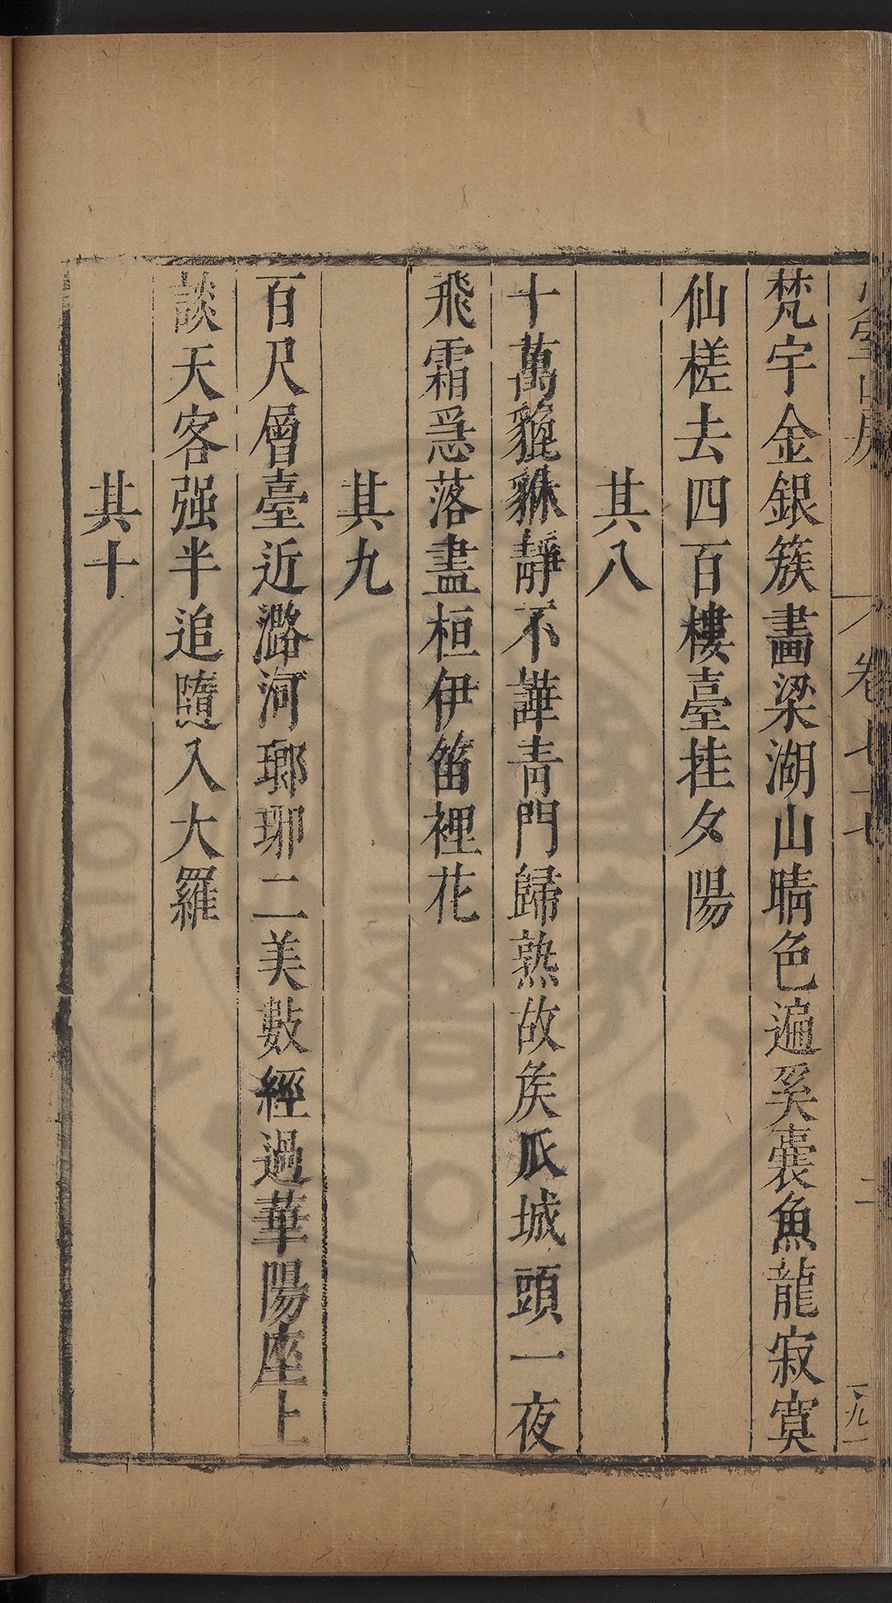 梵宇金銀簇畵梁湖山晴色遍奚囊魚龍寂寞
仙槎去四百樓臺挂夕陽
其八
十萬貔貅靜不譁靑門歸熟故矦瓜城頭一夜
飛霜急落盡桓伊笛裡花
其九
百尺層臺近潞河瑯琊二美數經過華陽座上
談天客强半追隨入大羅
其十